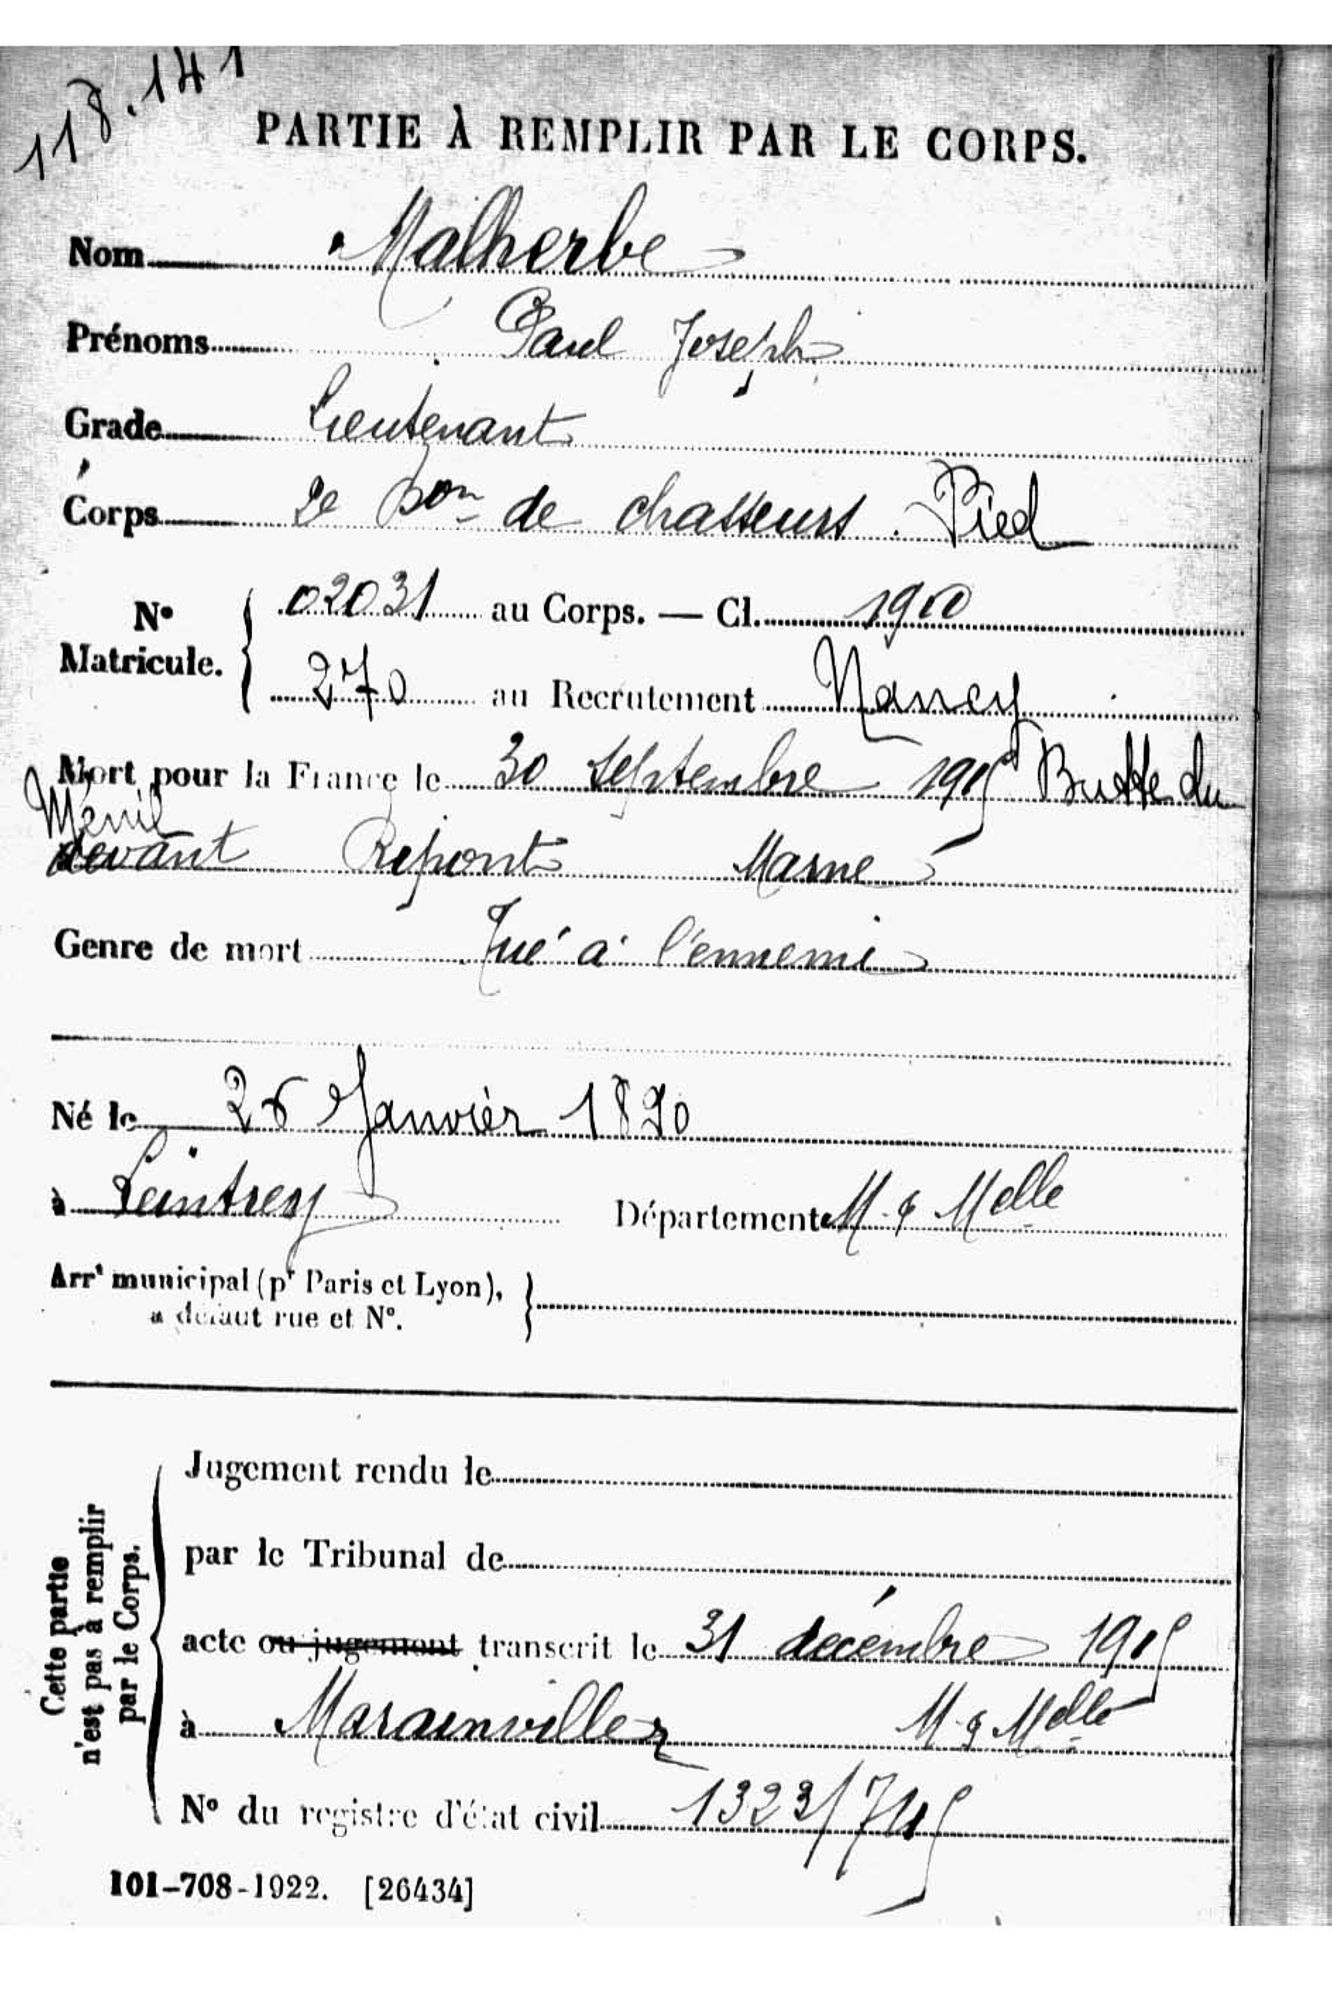 118.141
PARTIE À REMPLIR PAR LE CORPS.
Nom Malherbe
Prénoms Paul Joseph
Grade Lieutenant
Corps 2e Bon de chasseurs Pied
No Matricule. { 02031 au Corps. — Cl. 1910
270 au Recrutement Nancy
Mort pour la France le 30 septembre 1915 Butte du
Ménil
devant Ripont Marne
Genre de mort Tué à l'ennemi
Né le 26 Janvier 1890
à Leintrey Département M & Melle
Arrt municipal (pr Paris et Lyon), }
à défaut rue et No.
Cette partie
n'est pas à remplir
par le Corps.
Jugement rendu le
par le Tribunal de
acte ou jugement transcrit le 31 décembre 1915
à Marainviller M & Melle
No du registre d'état civil 1323/
101-708-1922. [26434]